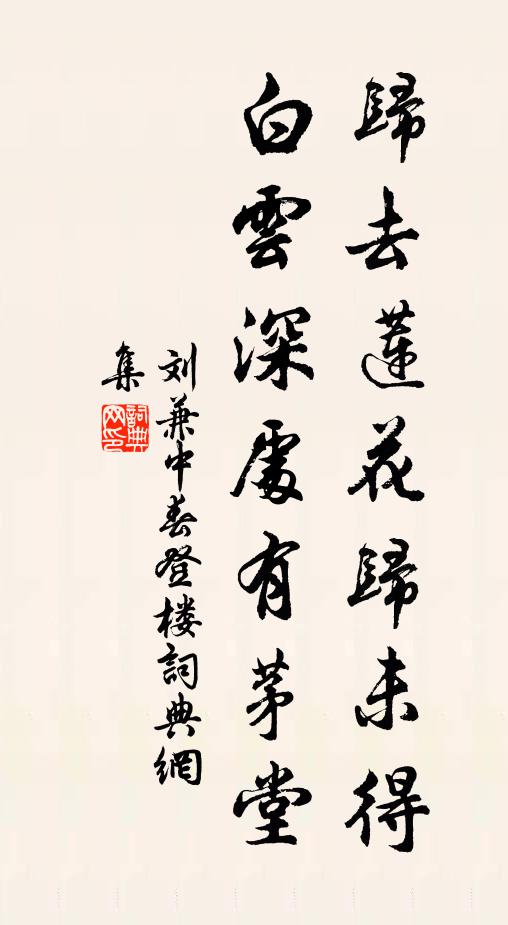 歸去蓮花歸未得
白雲深處有茅堂
刘兼中春登楼詞典網
集
詞典网印